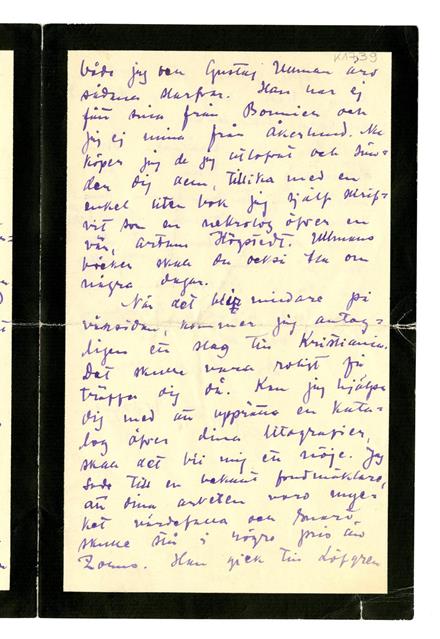 K 1739
både jag och Gustaf Ullman äro
sådana därför. Han har ej
fått sina från Bonnier och
jag ej mina från Åkerlund. Nu
köper jag de jag utlofvat och sän-
der dig dem, tillika med en
enkel liten bok jag själf skrif-
vit som en nekrolog öfver en
vän, Högstedt. Ullmans
böcker skall du också ha om
några dagar.
När det blir mindre på
växsidan, kommer jag antag-
ligen ett slag till Kristiania.
Det skulle vara roligt få
träffa dig då. Kan jag hjälpa
dig med att upprätta en kata-
log öfver dina litografier,
skall det bli mig ett nöje. Jag
sade till en bekant fondmäklare,
att dina arbeten voro myc-
ket värdefulla och snart
skulle stå i högre pris än
Zorns. Han gick till Löfgren